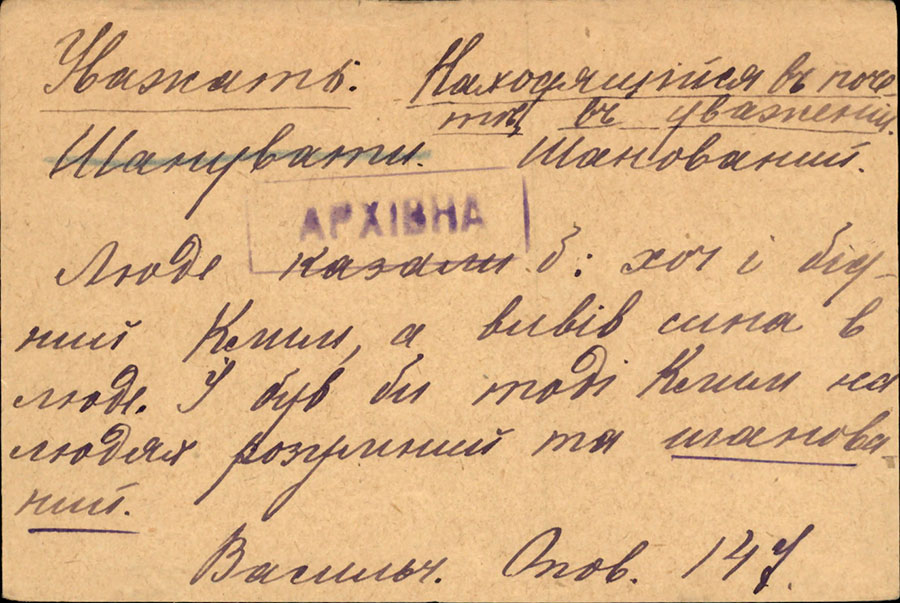 Уважать. Находящийся въ поче-
тѣ, въ уваженіи.
Шанувати. Шанований.
АРХІВНА
Люде казали б: хоч і бід-
ний Клим, а вивів сина в
люде. І був би тоді Клим на
людях розумний та шанова-
ний.
Васильч. Опов. 147.